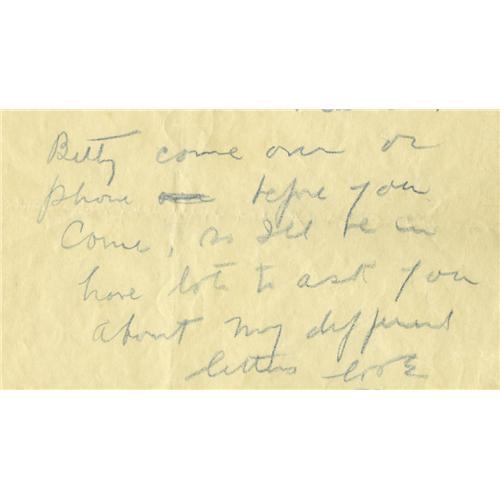 Betty come over or
phone before you
come, so I'll be in
have lots to ask you
about my different
letters look